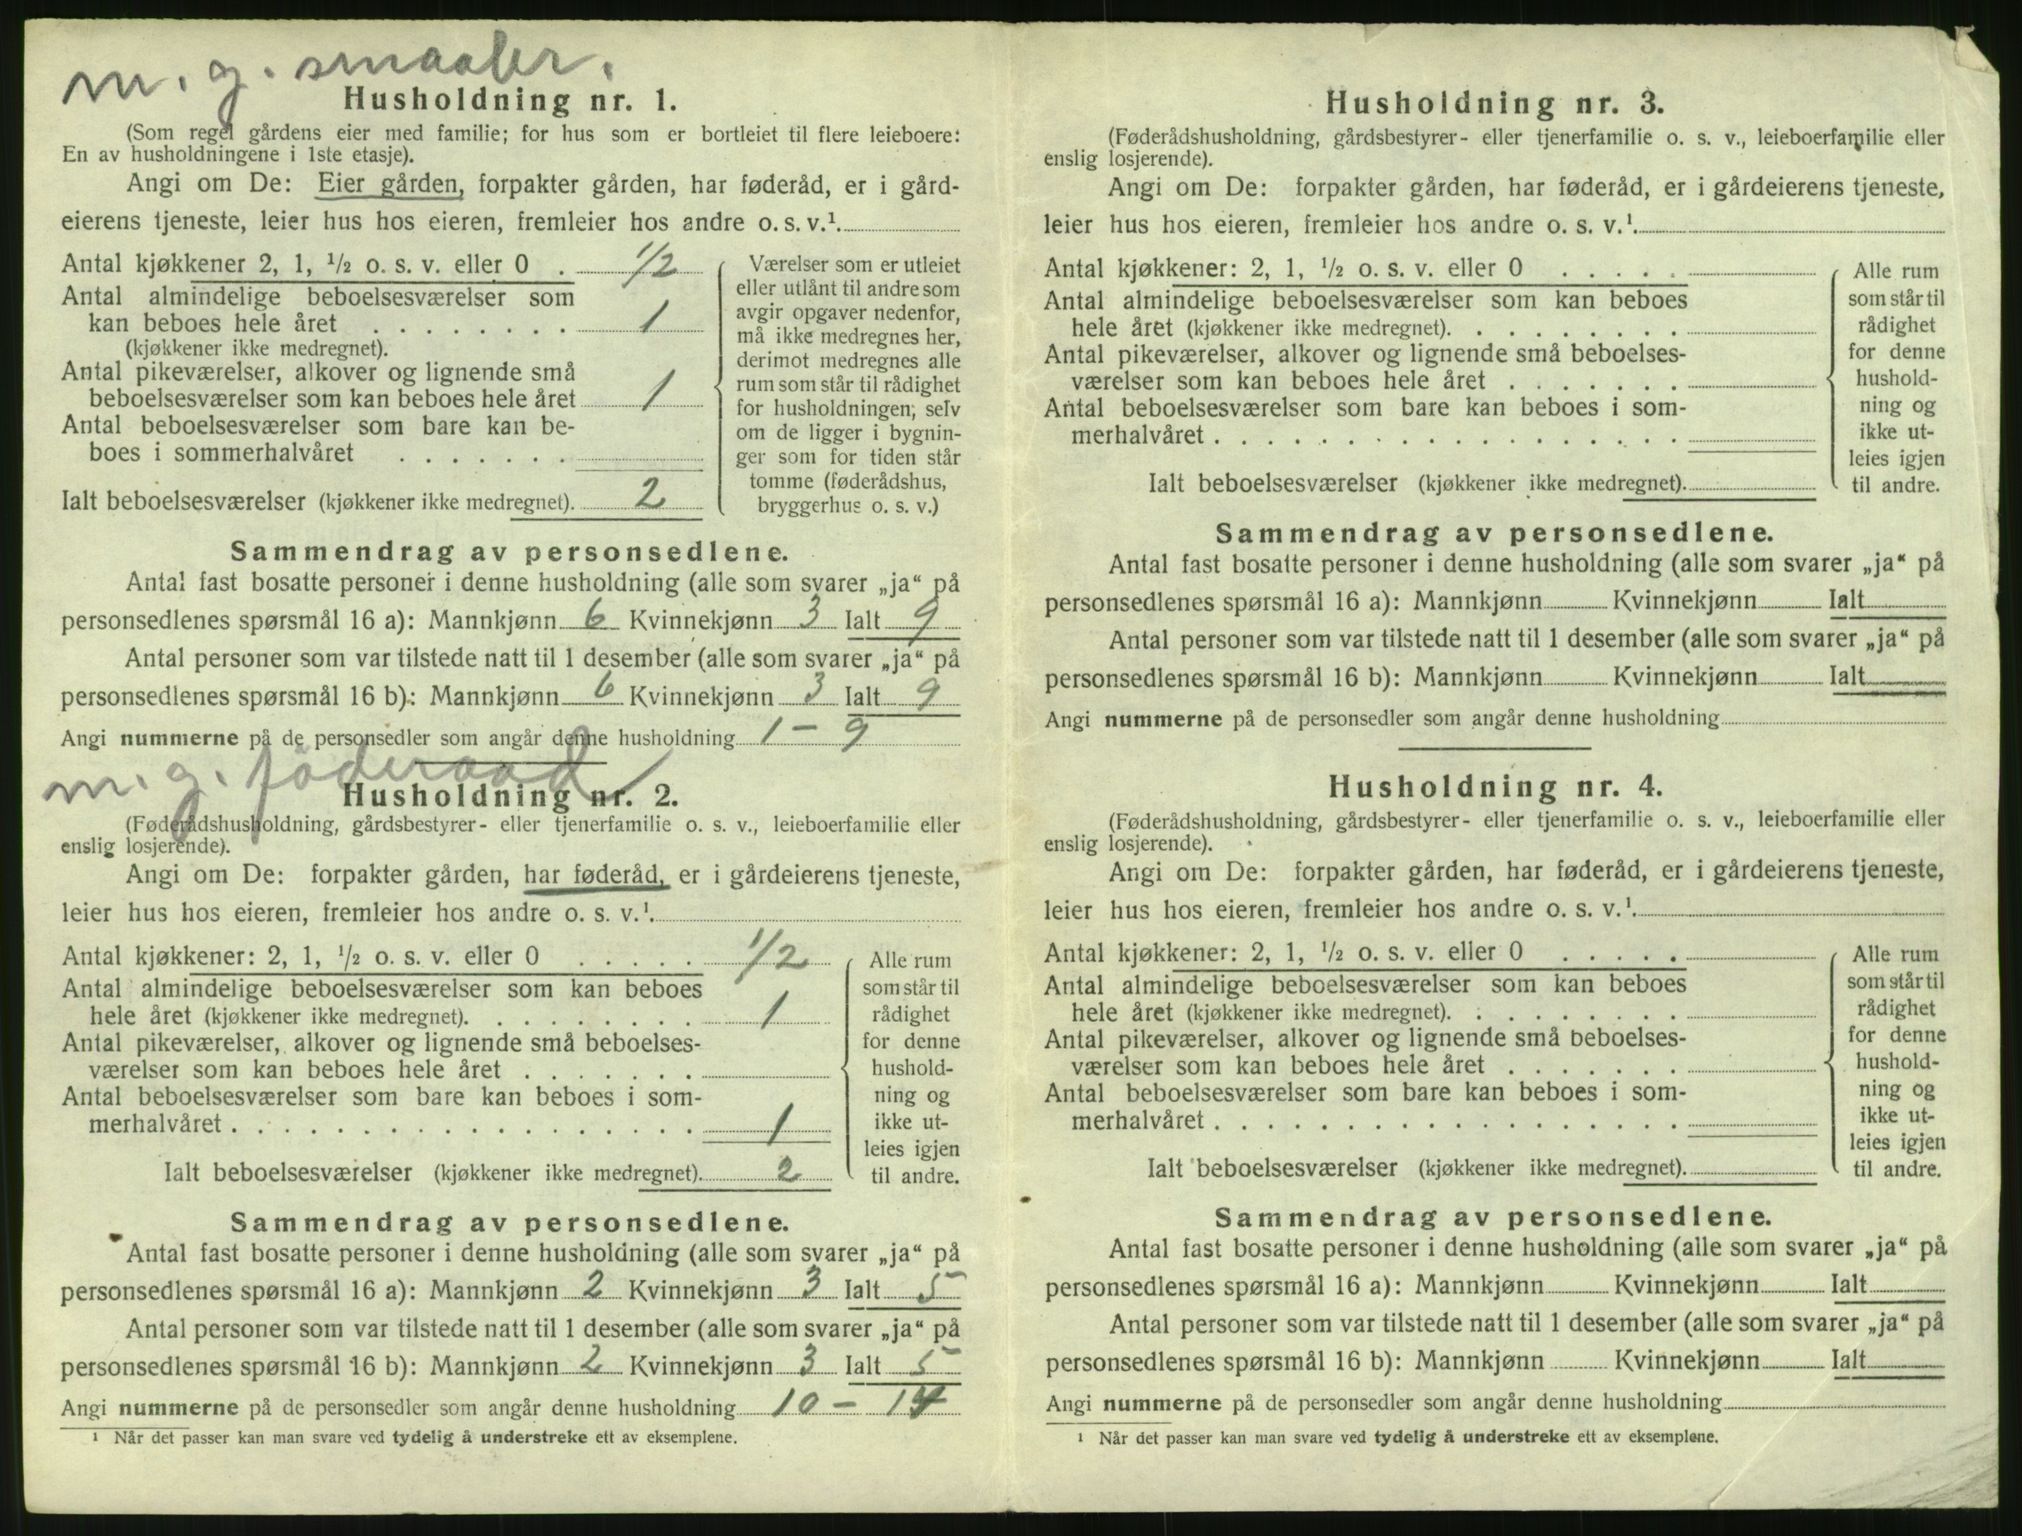 m. g. smaabr.
Husholdning nr. 1.
(Som regel gårdens eier med familie; for hus som er bortleiet til flere leieboere:
En av husholdningene i 1ste etasje).
Angi om De: Eier gården, forpakter gården, har føderåd, er i gård-
eierens tjeneste, leier hus hos eieren, fremleier hos andre o. s. v.¹.
Antal kjøkkener 2, 1, ½ o. s. v. eller 0 . 1/2
Antal almindelige beboelsesværelser som
kan beboes hele året . . . . . . . . 1
(kjøkkener ikke medregnet).
Antal pikeværelser, alkover og lignende små
beboelsesværelser som kan beboes hele året 1
Antal beboelsesværelser som bare kan be-
boes i sommerhalvåret . . . . . . .
Ialt beboelsesværelser (kjøkkener ikke medregnet). 2
Værelser som er utleiet
eller utlånt til andre som
avgir opgaver nedenfor,
må ikke medregnes her,
derimot medregnes alle
rum som står til rådighet
for husholdningen, selv
om de ligger i bygnin-
ger som for tiden står
tomme (føderådshus,
bryggerhus o. s. v.)
Sammendrag av personsedlene.
Antal fast bosatte personer i denne husholdning (alle som svarer „ja“ på
personsedlenes spørsmål 16 a): Mannkjønn 6 Kvinnekjønn 3 Ialt 9
Antal personer som var tilstede natt til 1 desember (alle som svarer „ja“ på
personsedlenes spørsmål 16 b): Mannkjønn 6 Kvinnekjønn 3 Ialt 9
Angi nummerne på de personsedler som angår denne husholdning 1 - 9
m. g. föderaad
Husholdning nr. 2.
(Føderådshusholdning, gårdsbestyrer- eller tjenerfamilie o. s. v., leieboerfamilie eller
enslig losjerende).
Angi om De: forpakter gården, har føderåd, er i gårdeierens tjeneste,
leier hus hos eieren, fremleier hos andre o. s. v.¹.
Antal kjøkkener: 2, 1, ½ o. s. v. eller 0 . . . . . 1/2
Antal almindelige beboelsesværelser som kan beboes
hele året (kjøkkener ikke medregnet). . . . . . . . . 1
Antal pikeværelser, alkover og lignende små beboelses-
værelser som kan beboes hele året . . . . . . .
Antal beboelsesværelser som bare kan beboes i som-
merhalvåret . . . . . . . . . . . . . . . . . . 1
Ialt beboelsesværelser (kjøkkener ikke medregnet). 2
Alle rum
som står til
rådighet
for denne
hushold-
ning og
ikke ut-
leies igjen
til andre.
Sammendrag av personsedlene.
Antal fast bosatte personer i denne husholdning (alle som svarer „ja“ på
personsedlenes spørsmål 16 a): Mannkjønn 2 Kvinnekjønn 3 Ialt 5
Antal personer som var tilstede natt til 1 desember (alle som svarer „ja“ på
personsedlenes spørsmål 16 b): Mannkjønn 2 Kvinnekjønn 3 Ialt 5
Angi nummerne på de personsedler som angår denne husholdning 10 - 14
¹ Når det passer kan man svare ved tydelig å understreke ett av eksemplene.
Husholdning nr. 3.
(Føderådshusholdning, gårdsbestyrer- eller tjenerfamilie o. s. v., leieboerfamilie eller
enslig losjerende).
Angi om De: forpakter gården, har føderåd, er i gårdeierens tjeneste,
leier hus hos eieren, fremleier hos andre o. s. v.¹.
Antal kjøkkener: 2, 1, ½ o. s. v. eller 0 . . . . .
Antal almindelige beboelsesværelser som kan beboes
hele året (kjøkkener ikke medregnet). . . . . . . . .
Antal pikeværelser, alkover og lignende små beboelses-
værelser som kan beboes hele året . . . . . . .
Antal beboelsesværelser som bare kan beboes i som-
merhalvåret . . . . . . . . . . . . . . . . . .
Ialt beboelsesværelser (kjøkkener ikke medregnet).
Alle rum
som står til
rådighet
for denne
hushold-
ning og
ikke ut-
leies igjen
til andre.
Sammendrag av personsedlene.
Antal fast bosatte personer i denne husholdning (alle som svarer „ja“ på
personsedlenes spørsmål 16 a): Mannkjønn Kvinnekjønn Ialt
Antal personer som var tilstede natt til 1 desember (alle som svarer „ja“ på
personsedlenes spørsmål 16 b): Mannkjønn Kvinnekjønn Ialt
Angi nummerne på de personsedler som angår denne husholdning
Husholdning nr. 4.
(Føderådshusholdning, gårdsbestyrer- eller tjenerfamilie o. s. v., leieboerfamilie eller
enslig losjerende).
Angi om De: forpakter gården, har føderåd, er i gårdeierens tjeneste,
leier hus hos eieren, fremleier hos andre o. s. v.¹.
Antal kjøkkener: 2, 1, ½ o. s. v. eller 0 . . . . .
Antal almindelige beboelsesværelser som kan beboes
hele året (kjøkkener ikke medregnet). . . . . . . . .
Antal pikeværelser, alkover og lignende små beboelses-
værelser som kan beboes hele året . . . . . . .
Antal beboelsesværelser som bare kan beboes i som-
merhalvåret . . . . . . . . . . . . . . . . . .
Ialt beboelsesværelser (kjøkkener ikke medregnet).
Alle rum
som står til
rådighet
for denne
hushold-
ning og
ikke ut-
leies igjen
til andre.
Sammendrag av personsedlene.
Antal fast bosatte personer i denne husholdning (alle som svarer „ja“ på
personsedlenes spørsmål 16 a): Mannkjønn Kvinnekjønn Ialt
Antal personer som var tilstede natt til 1 desember (alle som svarer „ja“ på
personsedlenes spørsmål 16 b): Mannkjønn Kvinnekjønn Ialt
Angi nummerne på de personsedler som angår denne husholdning
¹ Når det passer kan man svare ved tydelig å understreke ett av eksemplene.